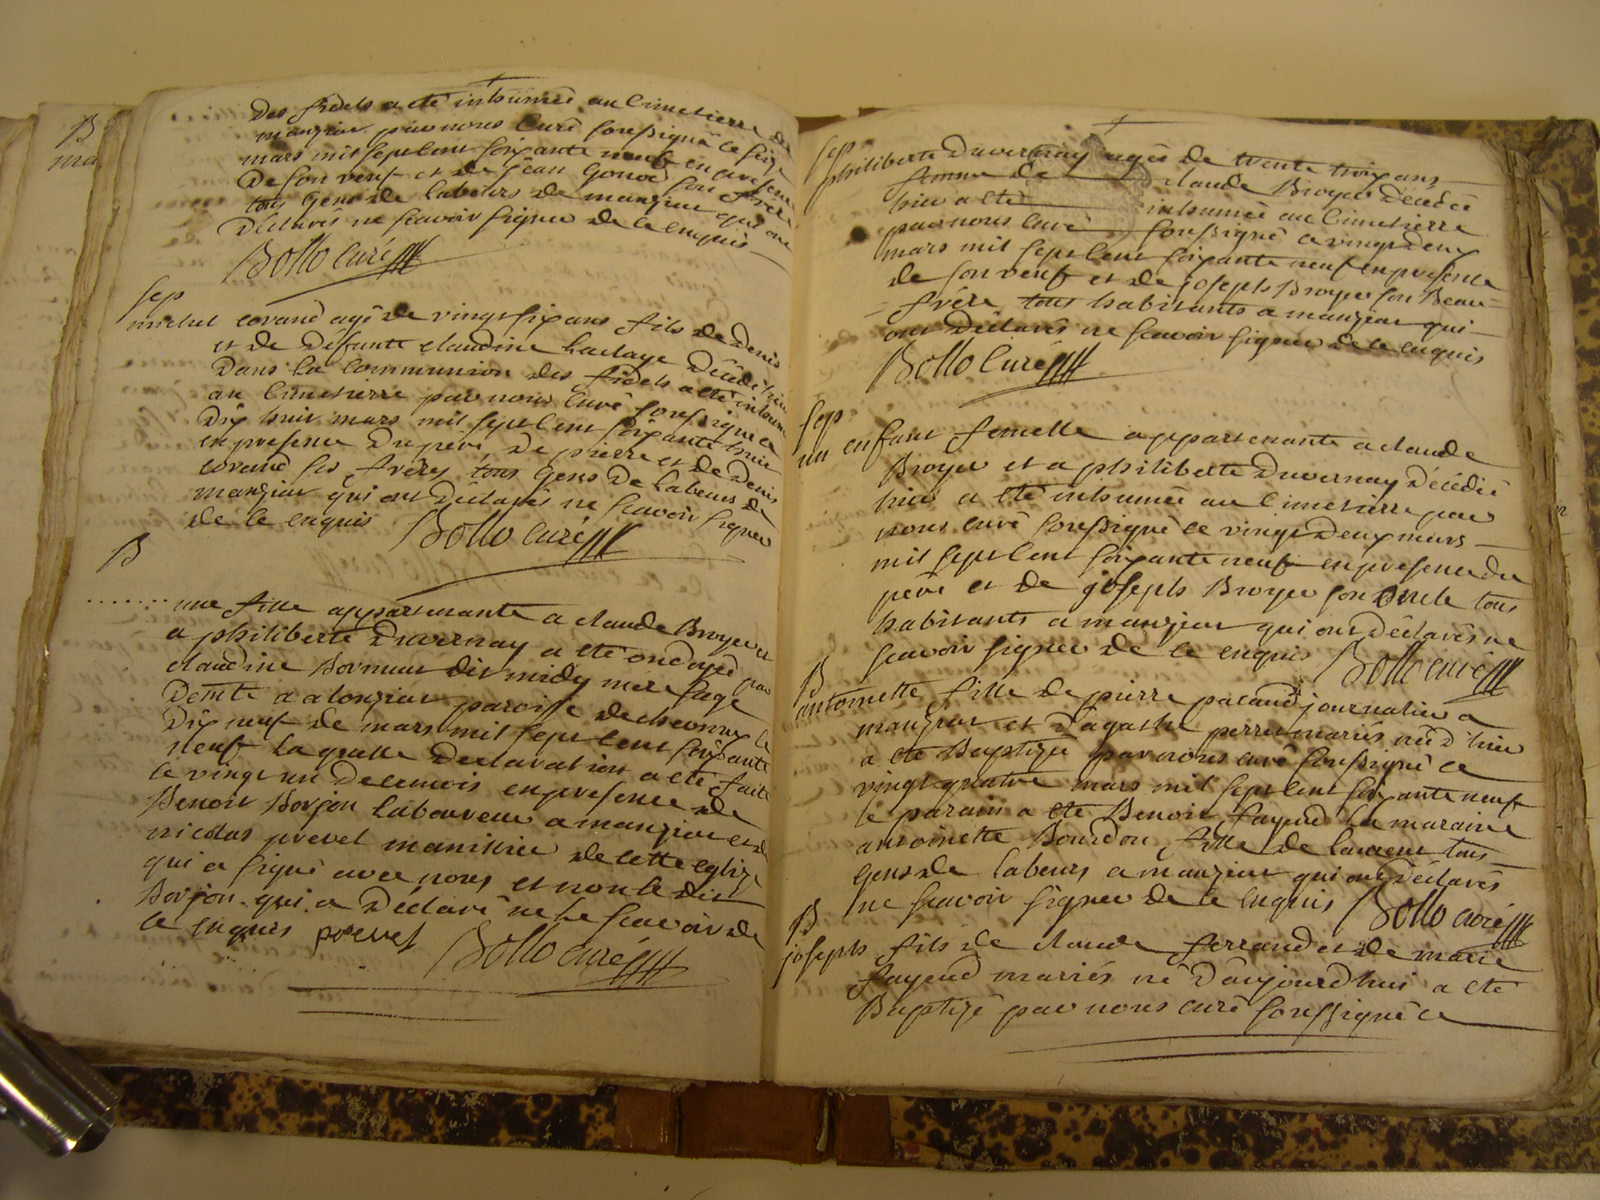 B
ma
Des fidels a eté inhumée au Cimetierre de
manziat par nous Curé soussigné ce seize
mars mil sept cent soixante neuf en presence
De son veuf et de jean Gonod son frere
tous Gens de labeurs de manziat qui ont
Déclarés ne scavoir signer de ce enquis
Bollo Curé
sep
michel corand agé de vingt six ans fils de Denis
et de Défunte claudine Laclaye Décédé hier
Dans la Communion des fidels a eté inhumé
au Cimetierre par nous Curé soussigné ce
Dix huit mars mil sept cent soixante huit
en presence Du pere, De pierre et de Denis
corand ses freres, tous Gens De labeurs de
manziat qui ont Déclarés ne scavoir signer
de ce enquis Bollo Curé
B
une fille appartenante a claude Broyer et
a philiberte Duvernay a eté ondoyed par
claudine dit midy mere sage
Demte a alonziat paroisse de chevroux le
Dix neuf de mars mil sept cent soixante
neuf la quelle Declaration a eté faite
le vingt un De ce mois en presence de
Benoit Borjon laboureur a manziat et de
nicolas prevet de cette eglize
qui a signé avec nous et non le dit
Borjon qui a Déclaré ne le scavoir de
ce enquis prevet Bollo curé
sep
philiberte Duvernay agée de trente trois ans
femme de claude Broyer Décédée
hier a eté inhumée au Cimetierre
par nous Curé soussigné ce vingt deux
mars mil sept cent soixante neuf en presence
de son veuf et de joseph Broyer son Beau
frére tous habitants a manziat qui
ont Déclarés ne scavoir signer de ce enquis
Bollo Curé
sep
un enfant femelle appartenante a claude
Broyer et a philiberte Duvernay Décédée
hier a eté inhumée au Cimetierre par
nous curé soussigné ce vingt Deux mars
mil sept cent soixante neuf en presence du
pere et de joseph Broyer son oncle tous
habitants a manziat qui ont Déclarés ne
scavoir signer de ce enquis Bollo curé
B
antoinette fille de pierre pacaud journalier a
manziat et d'agathe perret mariés née d'hier
a eté Baptizée par nous curé soussigné ce
vingt quatre mars mil sept cent soixante neuf
le parain a eté Benoit fayend la maraine
antoinette Bourdon, fille de laurent tous
Gens de labeurs a manziat qui ont Déclarés
ne scavoir signer de ce enquis Bollo curé
B
joseph fils de claude ferrand et de marie
fayend mariés né D'aujourdhui a eté
Baptizé par nous curé soussigné ce